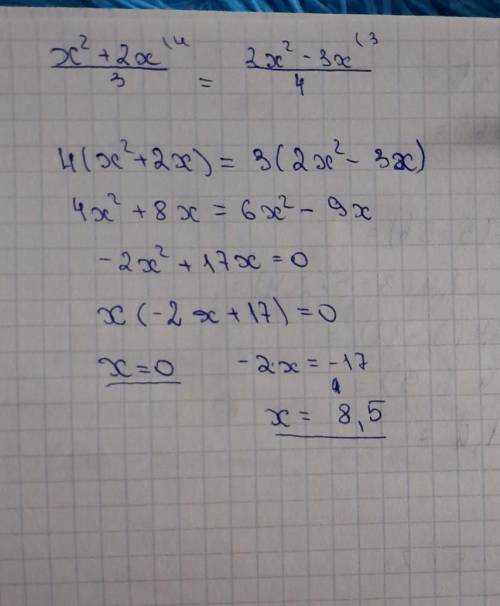 (x² + 2x)/3 ⁽⁴ = (2x² - 3x)/4 ⁽³
4(x²+2x) = 3(2x² - 3x)
4x² + 8x = 6x² - 9x
-2x² + 17x = 0
x(-2x + 17) = 0
x = 0 -2x = -17
x = 8,5